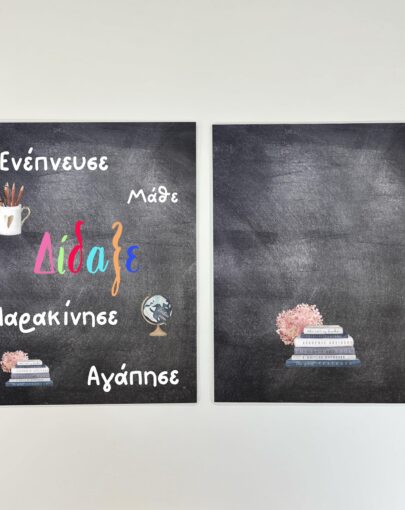 Ενέπνευσε
Μάθε
Δίδαξε
Παρακίνησε
Αγάπησε